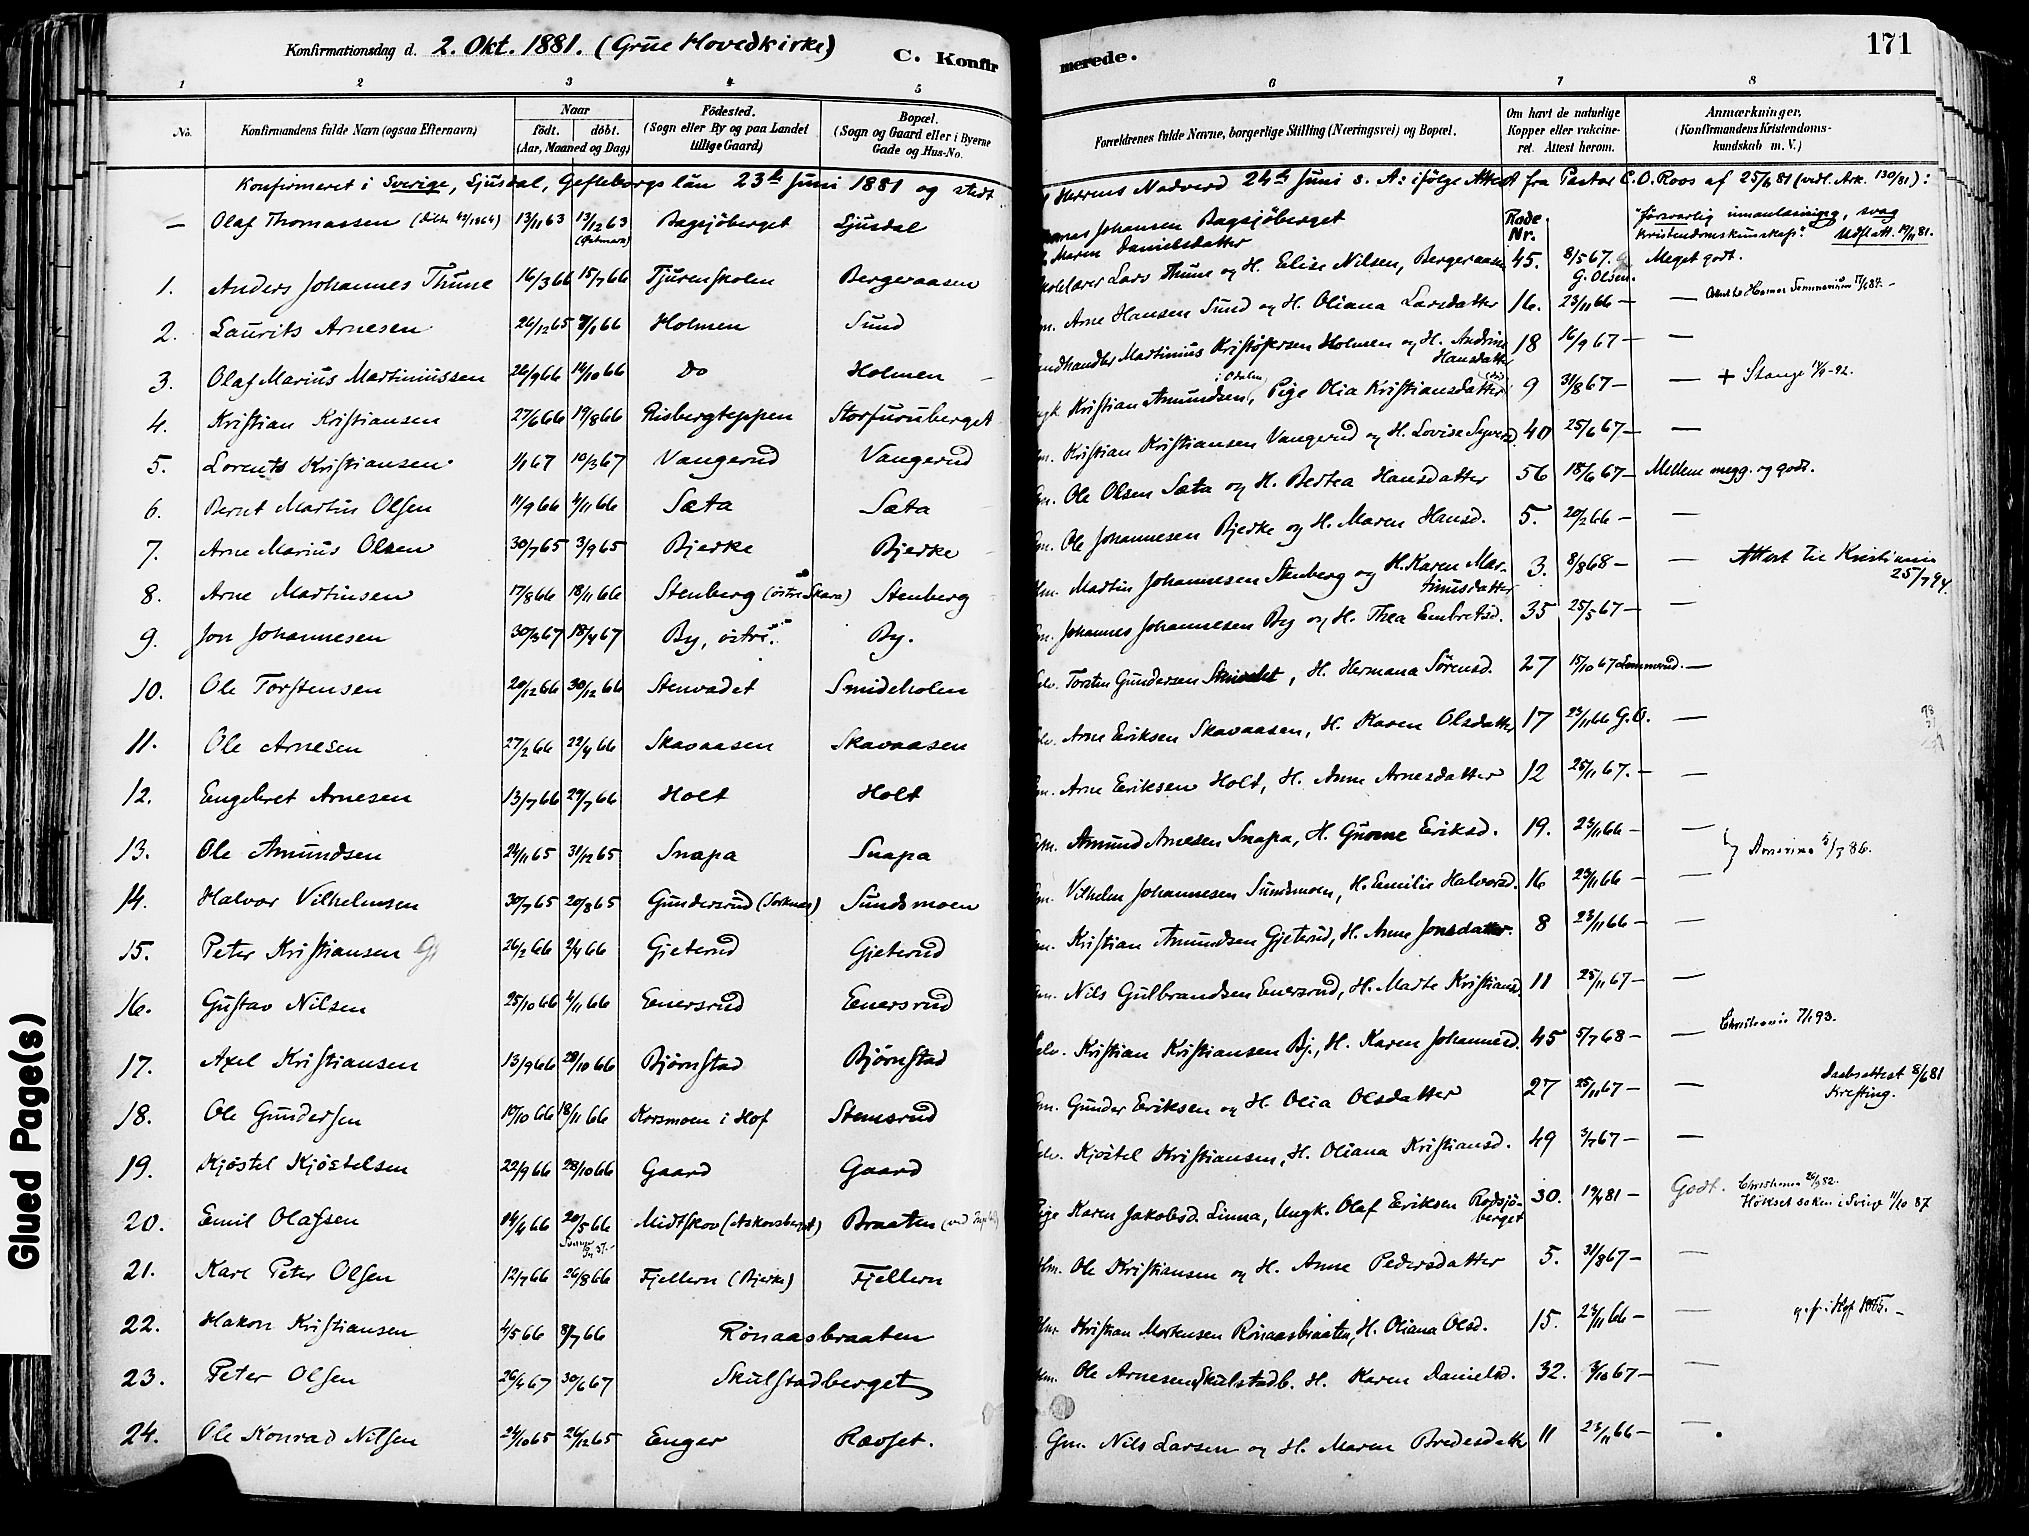 Konfirmationsdag d. 2. Okt. 1881. (Grue Hovedkirke) C. Konfirmerede. 171
1 2 3 4 5 6 7 8
No. Konfirmandens fulde Navn (ogsaa Efternavn) Naar födt. döbt. (Aar, Maaned og Dag) Födested. (Sogn eller By og paa Landet tillige Gaard) Bopæl. (Sogn og Gaard eller i Byerne Gade og Hus-No. Forældrenes fulde Navne, borgerlige Stilling (Næringsvei) og Bopæl. Om havt de naturlige Kopper eller vakcineret. Attest herom. Anmærkninger. (Konfirmandens Kristendomskundskab m. V.)
Konfirmeret i Sverige, Ljusdal, Gefleborgs län 23de Juni 1881 og stedt Herrens Nadverd 24de Juni s. A: ifølge Attest fra Pastor C. O. Roos af 25/6 81 (vedl. Ark. 130/81):
— Olaf Thomassen 13/11 63 13/12 63 Bagsjöberget Ljusdal Johansen Bagsjöberget Maren Danielsdatter Rode Nr. "försvarlig innanläsning, svag kristendomskunskap". Udflatt. 19/11 81.
1. Anders Johannes Thune 16/3 66 15/7 66 Tjurenskolen Bergeraasen Lars Thune og H. Elise Nilsen, Bergeraasen 45. 8/5 67. G. Olsen. Meget godt.
2. Laurits Arnesen 26/12 65 7/1 66 Holmen Sund Arne Hansen Sund og H. Oliana Larsdatter 16. 23/11 66 — —
3. Olaf Marius Martiniussen 26/9 66 14/10 66 Do Holmen Martinius Kristofersen Holmen og H. Andrine Hansdatter 18 16/9 67 — —
4. Kristian Kristiansen 27/6 66 19/8 66 Risbergteppen Storfuruberget Kristian Amundsen i Odalen, Pige Olia Kristiansdatter 9 31/8 67 — — + Stange
5. Lorents Kristiansen 1/1 67 10/3 67 Vangerud Vangerud Kristian Kristiansen Vangerud og H. Lovise Syversd. 40 25/6 67 — —
6. Bernt Martin Olsen 11/9 66 4/11 66 Sæta Sæta Ole Olsen Sæta og H. Bertea Hansdatter 56 18/6 67 — Mellem megg. og godt.
7. Arne Marius Olsen 30/7 65 3/9 65 Bjerke Bjerke Ole Johannesen Bjerke og H. Maren Hansd. 5. 20/2 66 — —
8. Arne Martinsen 17/8 66 18/11 66 Stenberg (östre Skara) Stenberg Martin Johannesen Stenberg og H. Karen Martinusdatter 3. 8/8 68 — — Attest til Kristiania 25/7 94.
9. Jon Johannesen 30/3 67 18/4 67 By, östre. By. Johannes Johannesen By og H. Thea Embretsd. 35 25/5 67 — —
10. Ole Torstensen 20/12 66 30/12 66 Stenvadet Smideholen Torsten Gundersen Stenvadet, H. Hermana Sörensd. 27 15/10 67 Lemmerud. —
11. Ole Arnesen 27/2 66 22/4 66 Skavaasen Skavaasen Arne Eriksen Skavaasen, H. Karen Olsdatter 17 23/11 66 G. O. —
12. Engebret Arnesen 13/7 66 29/7 66 Holt Holt Arne Eriksen Holt, H. Anne Arnesdatter 12 25/11 67. — —
13. Ole Amundsen 24/11 65 31/12 65 Snapa Snapa Amund Arnesen Snapa, H. Guonne Eriksd. 19. 23/11 66 — —
14. Halvor Vilhelmsen 30/7 65 20/8 65 Gundersrud (Sorknes) Sundsmoen Vilhelm Johannesen Sundsmoen, H. Emilie Halvorsd. 16 23/11 66 — — } Amerika 5/3 86.
15. Peter Kristiansen 26/2 66 2/4 66 Gjeterud Gjeterud Kristian Amundsen Gjeterud, H. Anne Jonsdatter. 8 23/11 66 — —
16. Gustav Nilsen 25/10 66 4/11 66 Enersrud Enersrud Nils Gulbrandsen Enersrud, H. Marte Kristiansd. 11 25/11 67 — —
17. Axel Kristiansen 13/9 66 28/10 66 Björnstad Björnstad Kristian Kristiansen Bj., H. Karen Johannesd. 45 5/7 68 — — Christiania 7/1 93.
18. Ole Gundersen 10/10 66 18/11 66 Korsmoen i Hof Stemsrud Gunder Eriksen og H. Olia Olsdatter 27 25/11 67 — — Daabsattest 8/6 81 Krefting.
19. Kjöstel Kjöstelsen 22/9 66 28/10 66 Gaard Gaard Kjöstel Kristiansen, H. Oliana Kristiansd. 49 3/7 67 — —
20. Emil Olafsen 14/4 66 20/5 66 Midtskov (Askonsberget) Braaten Pige Karen Jakobsd. Linna, Ungk. Olaf Eriksen Rodsjöberget 30. 19/4 81 — Godt. Christiania 26/9 82. i Sverige 11/10 87
21. Karl Peter Olsen 12/7 66 26/8 66 Fjellern (Bjerke) Fjellern Ole Kristiansen og H. Anne Pedersdatter 5. 31/8 67 — —
22. Hakon Kristiansen 4/5 66 8/7 66 Rönaasbraaten Kristian Mortensen Rönaasbraaten, H. Oliana Olsd. 15. 23/11 66 — — i Hof
23. Peter Olsen 26/4 67 30/6 67 Skulstadberget Ole Arnesen Skulstadb. H. Karen Danielsd. 32. 3/10 67 — —
24. Ole Konrad Nilsen 24/10 65 24/12 65 Enger Rævset. Gm. Nils Larsen og H. Maren Bredesdatter 11 23/11 66 — —
Glued Page(s)